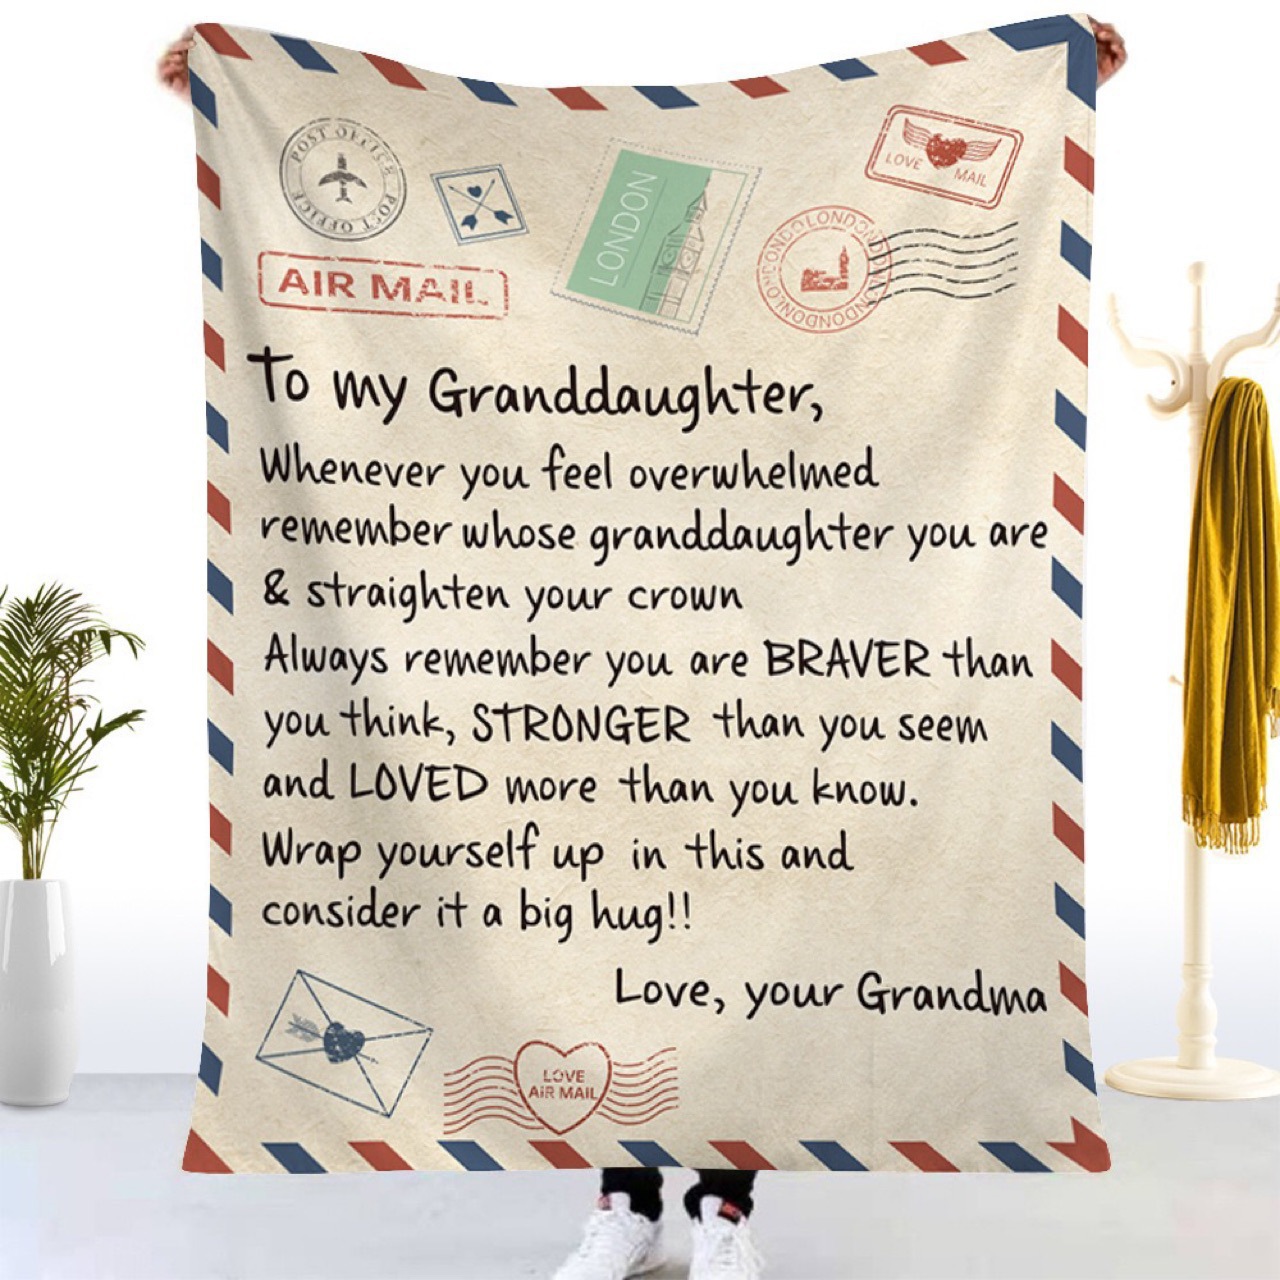 POST OFFICE POST OFFICE
AIR MAIL
LONDON
LOVE MAIL
LONDON LONDON LONDON LONDON
To my Granddaughter,
Whenever you feel overwhelmed
remember whose granddaughter you are
& straighten your crown
Always remember you are BRAVER than
you think, STRONGER than you seem
and LOVED more than you know.
Wrap yourself up in this and
consider it a big hug!!
Love, your Grandma
LOVE
AIR MAIL